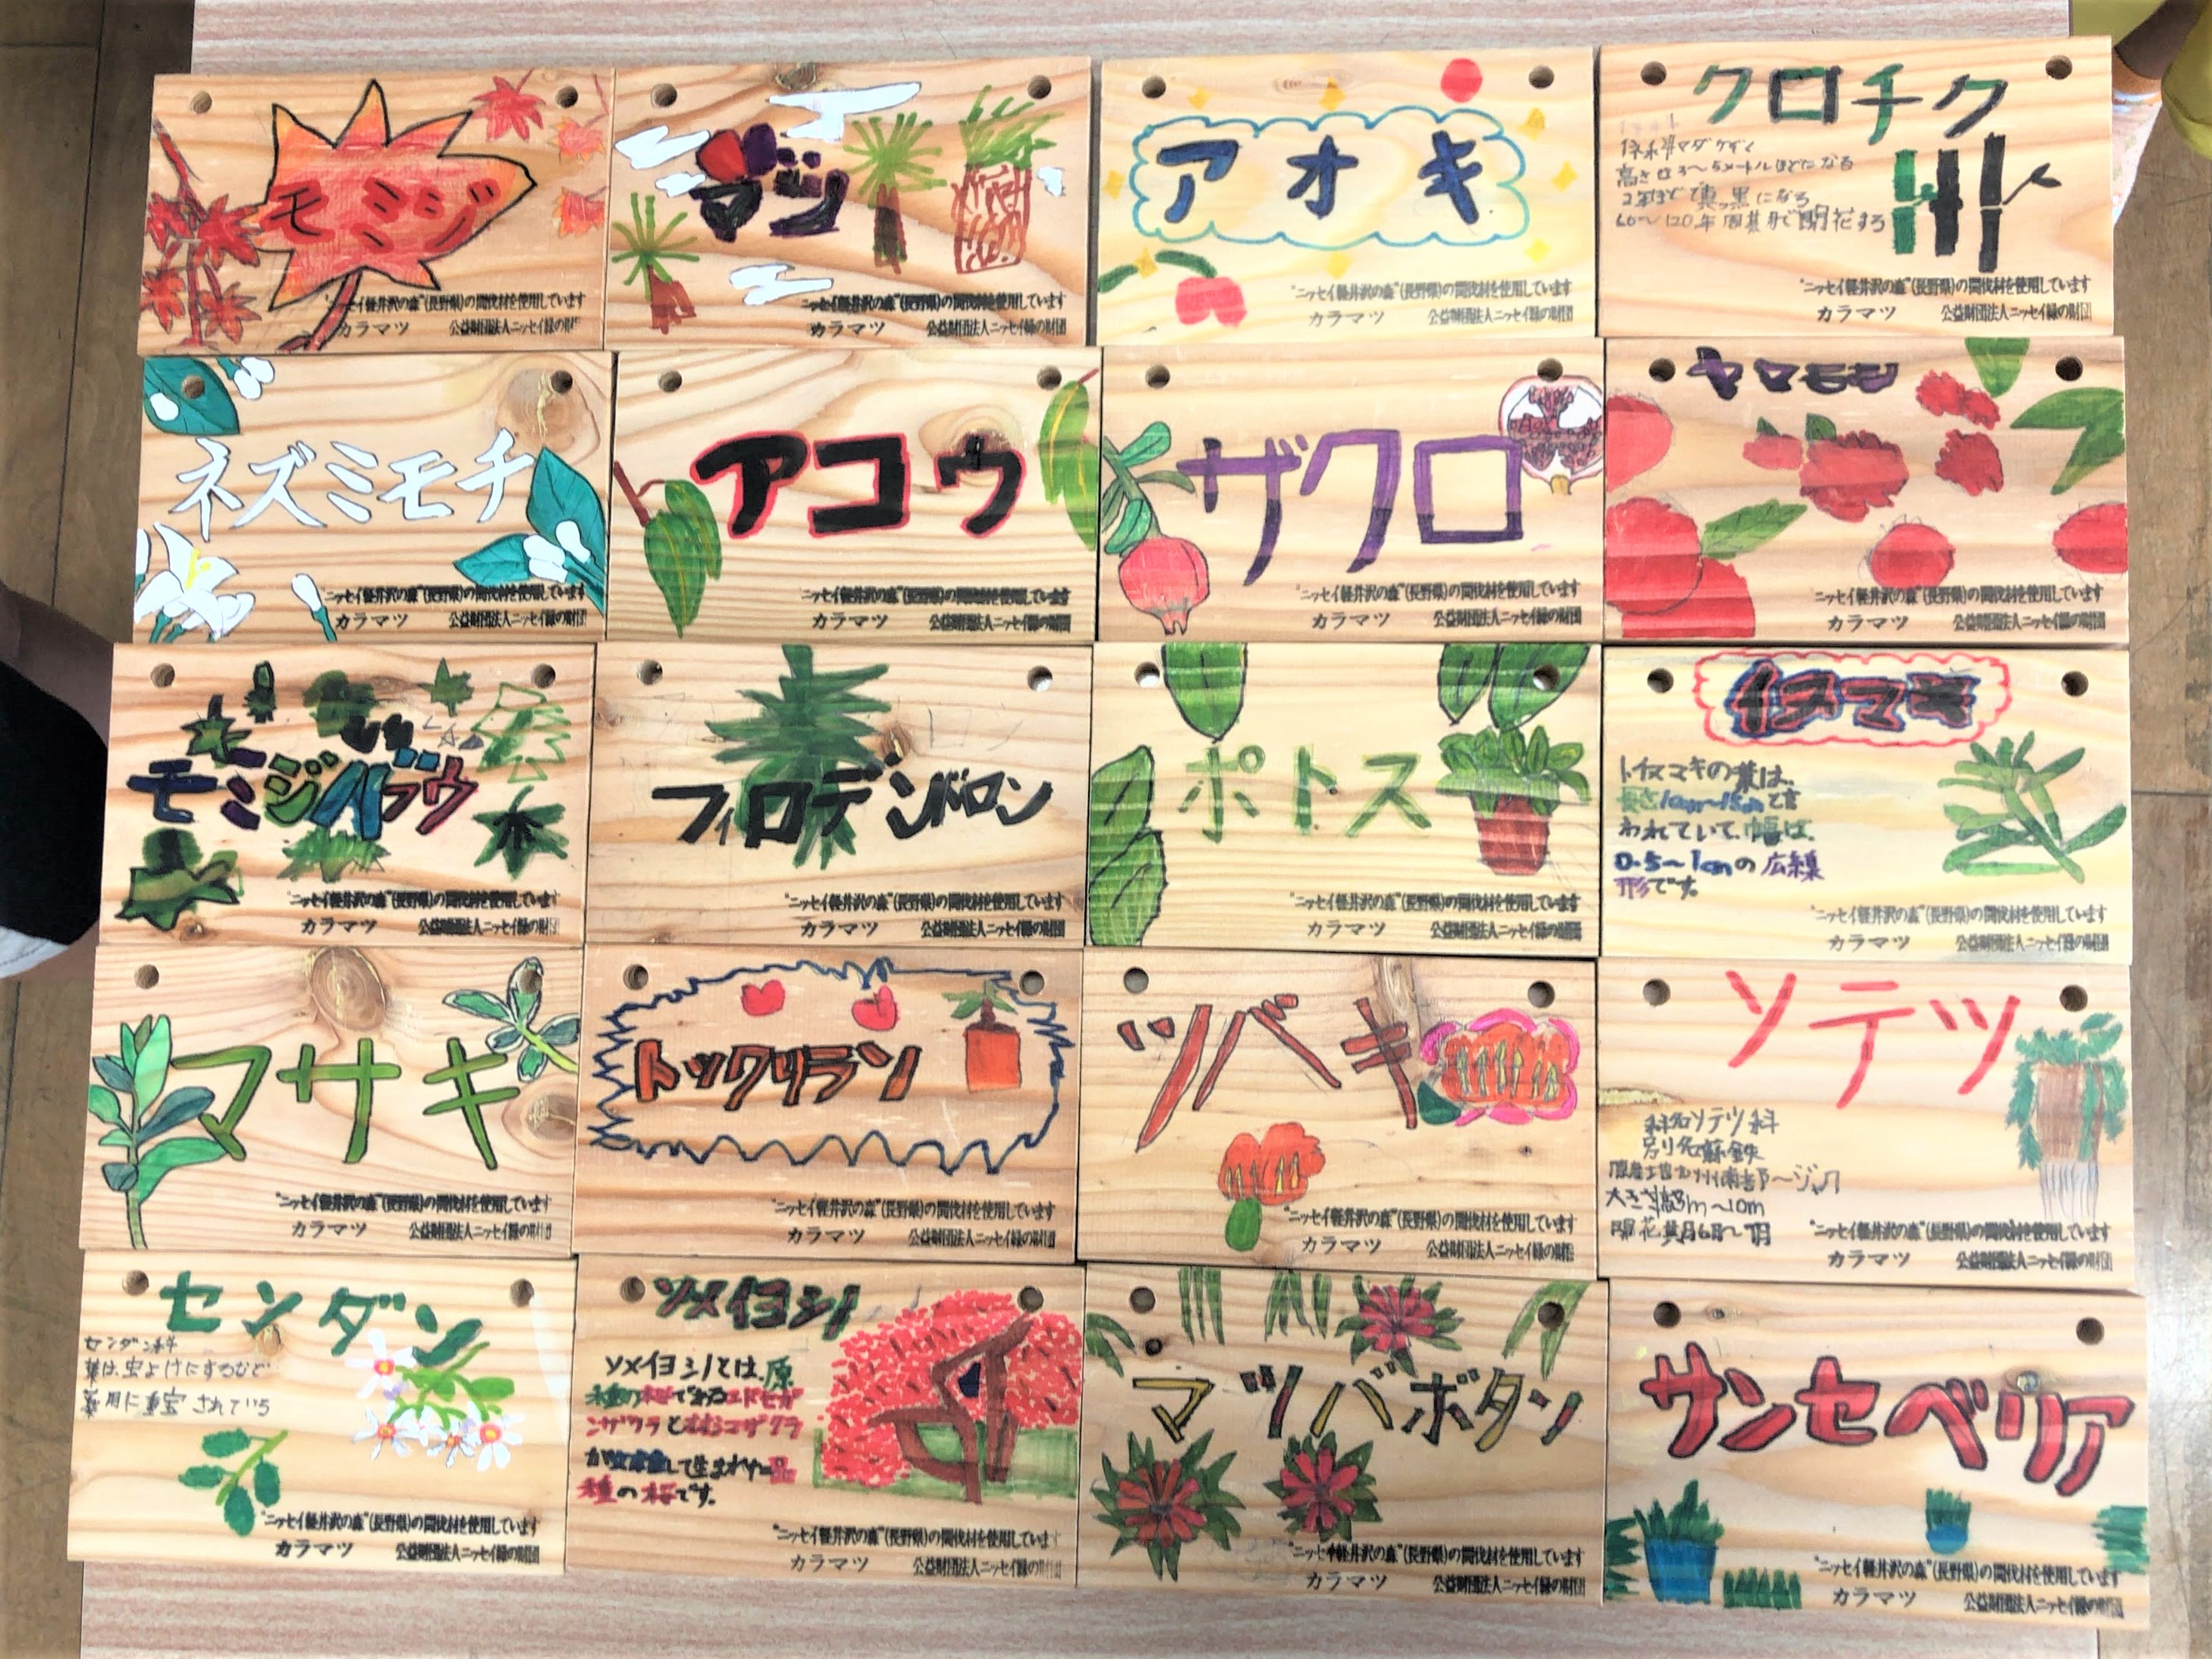 モミジ
"ニッセイ軽井沢の森"(長野県)の間伐材を使用しています
カラマツ 公益財団法人ニッセイ緑の財団
"ニッセイ軽井沢の森"(長野県)の間伐材を使用しています
カラマツ 公益財団法人ニッセイ緑の財団
アオキ
"ニッセイ軽井沢の森"(長野県)の間伐材を使用しています
カラマツ 公益財団法人ニッセイ緑の財団
クロチク
高さは3〜5メートルほどになる
2年ほどで真っ黒になる
60〜120年周期で開花する
"ニッセイ軽井沢の森"(長野県)の間伐材を使用しています
カラマツ 公益財団法人ニッセイ緑の財団
ネズミモチ
"ニッセイ軽井沢の森"(長野県)の間伐材を使用しています
カラマツ 公益財団法人ニッセイ緑の財団
アコウ
"ニッセイ軽井沢の森"(長野県)の間伐材を使用しています
カラマツ 公益財団法人ニッセイ緑の財団
ザクロ
"ニッセイ軽井沢の森"(長野県)の間伐材を使用しています
カラマツ 公益財団法人ニッセイ緑の財団
ヤマモモ
"ニッセイ軽井沢の森"(長野県)の間伐材を使用しています
カラマツ 公益財団法人ニッセイ緑の財団
モミジバフウ
"ニッセイ軽井沢の森"(長野県)の間伐材を使用しています
カラマツ 公益財団法人ニッセイ緑の財団
フィロデンドロン
"ニッセイ軽井沢の森"(長野県)の間伐材を使用しています
カラマツ 公益財団法人ニッセイ緑の財団
ポトス
"ニッセイ軽井沢の森"(長野県)の間伐材を使用しています
カラマツ 公益財団法人ニッセイ緑の財団
イヌマキ
イヌマキの葉は、
長さ10cm〜15cmと言
われていて、幅は、
0.5〜1cmの広線
形です。
"ニッセイ軽井沢の森"(長野県)の間伐材を使用しています
カラマツ 公益財団法人ニッセイ緑の財団
マサキ
"ニッセイ軽井沢の森"(長野県)の間伐材を使用しています
カラマツ 公益財団法人ニッセイ緑の財団
トックリラン
"ニッセイ軽井沢の森"(長野県)の間伐材を使用しています
カラマツ 公益財団法人ニッセイ緑の財団
ツバキ
"ニッセイ軽井沢の森"(長野県)の間伐材を使用しています
カラマツ 公益財団法人ニッセイ緑の財団
ソテツ
科名ソテツ科
別名蘇鉄
原産地九州南部〜
大きさ高3m〜10m
開花期6月〜7月
"ニッセイ軽井沢の森"(長野県)の間伐材を使用しています
カラマツ 公益財団法人ニッセイ緑の財団
センダン
センダン科
葉は、虫よけにするなど
薬用に重宝されている
"ニッセイ軽井沢の森"(長野県)の間伐材を使用しています
カラマツ 公益財団法人ニッセイ緑の財団
ソメイヨシノ
ソメイヨシノとは、原
種の桜であるエドヒガ
ンザクラとオオシマザクラ
が交雑して生まれた品
種の桜です。
"ニッセイ軽井沢の森"(長野県)の間伐材を使用しています
カラマツ 公益財団法人ニッセイ緑の財団
マツバボタン
"ニッセイ軽井沢の森"(長野県)の間伐材を使用しています
カラマツ 公益財団法人ニッセイ緑の財団
サンセベリア
"ニッセイ軽井沢の森"(長野県)の間伐材を使用しています
カラマツ 公益財団法人ニッセイ緑の財団